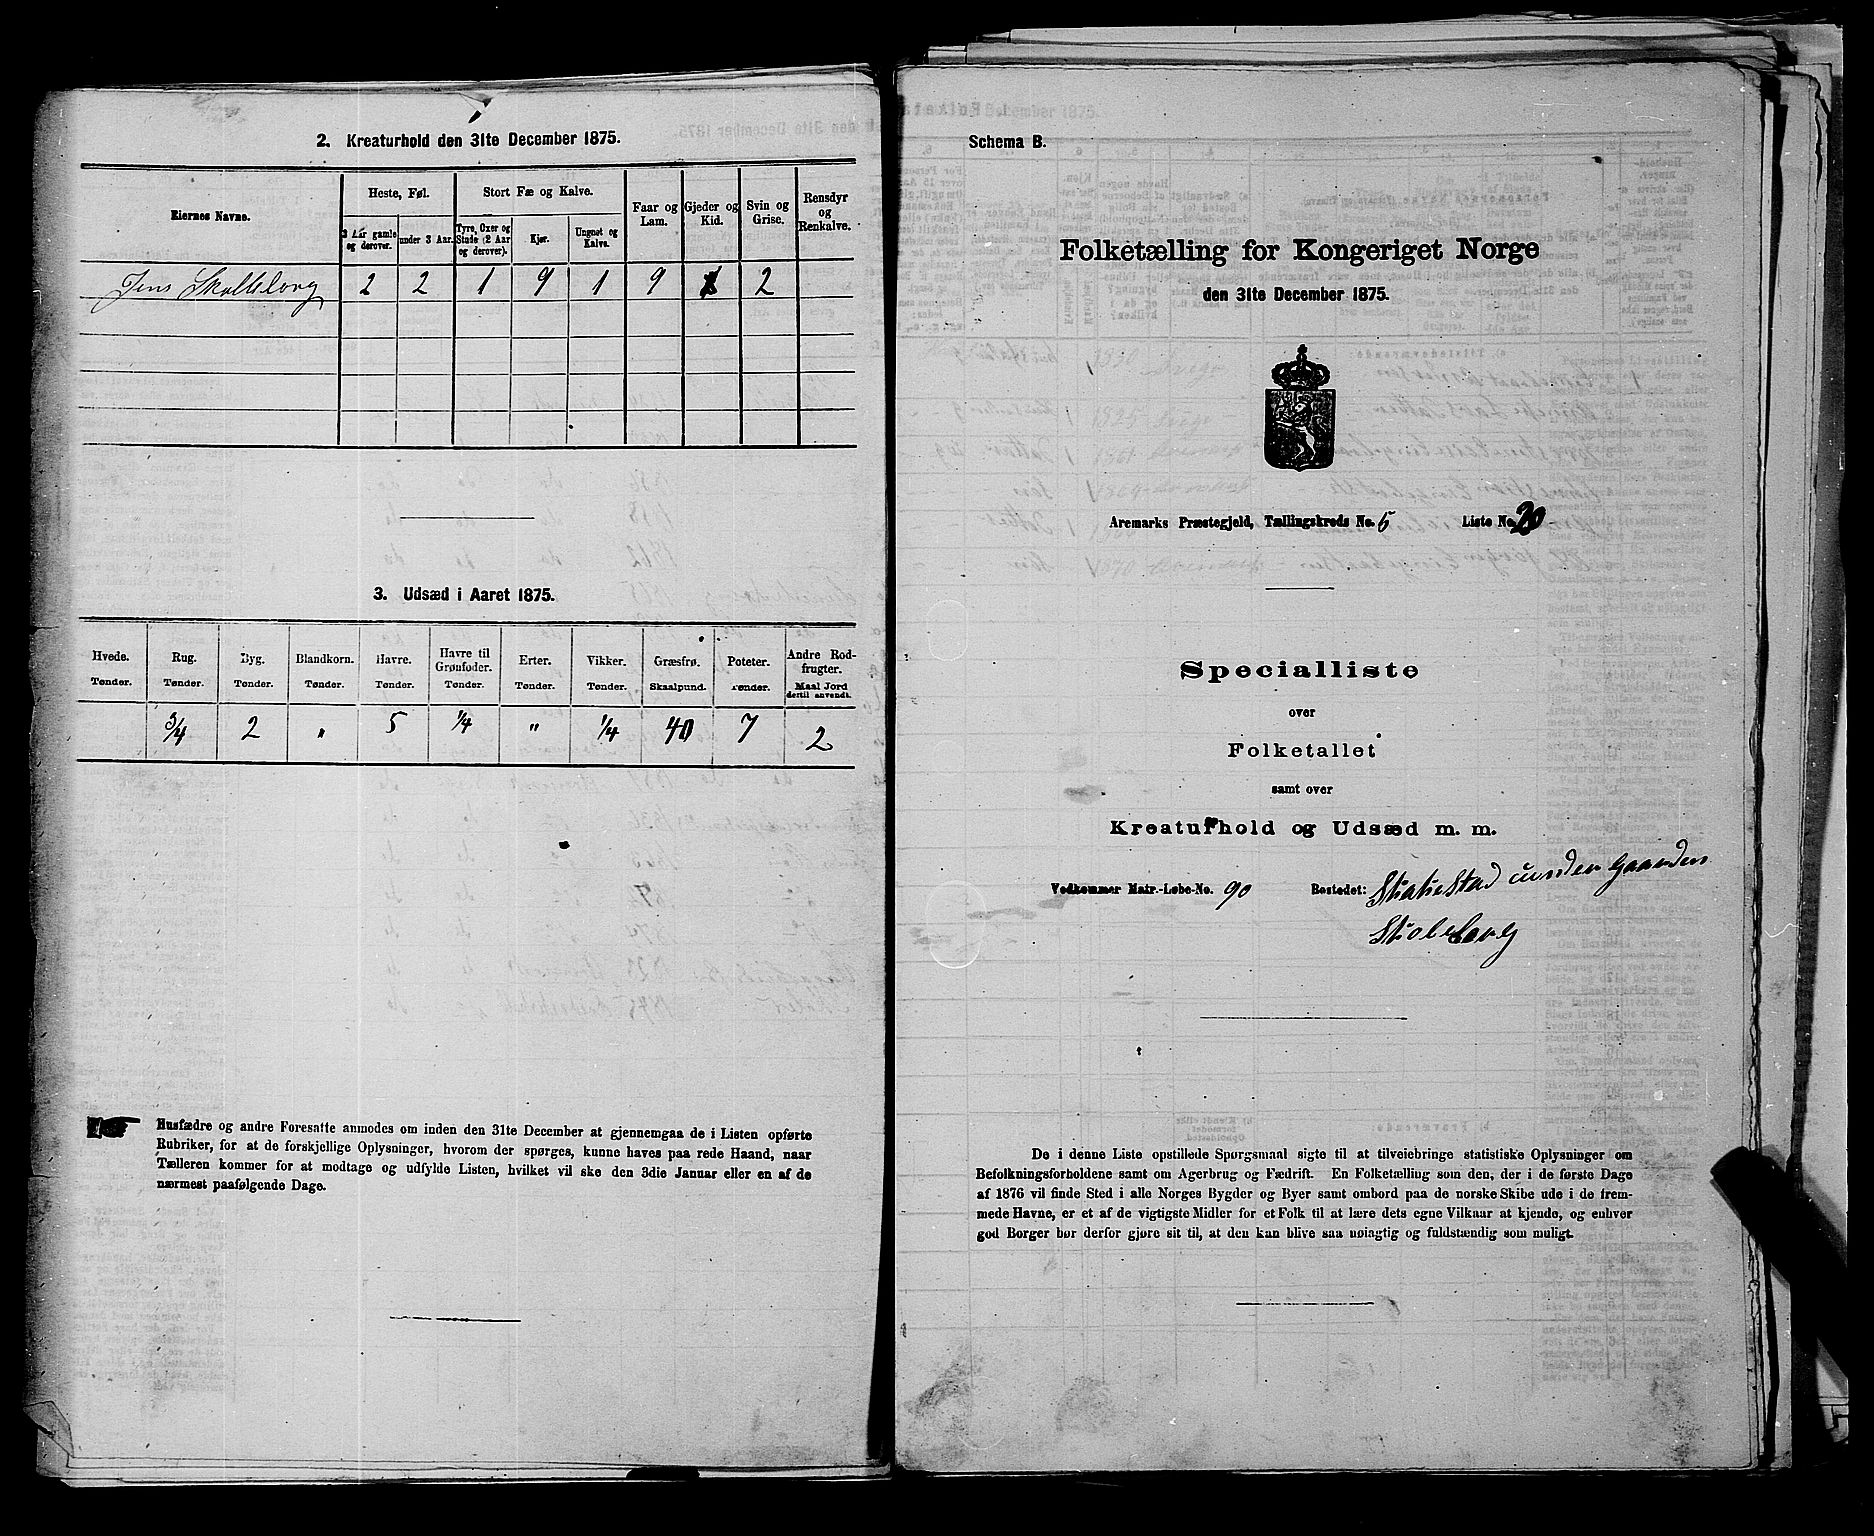 2. Kreaturhold den 31te December 1875.
Eiernes Navne.
Heste, Føl.
Stort Fæ og Kalve.
Faar og Lam.
Gjeder og Kid.
Svin og Grise.
Rensdyr og Renkalve.
3 Aar gamle og derover.
under 3 Aar.
Tyre, Oxer og Stude (2 Aar og derover).
Kjør.
Ungnøt og Kalve.
Jens Skolleborg 2 2 1 9 1 9 2
3. Udsæd i Aaret 1875.
Hvede. Rug. Byg. Blandkorn. Havre. Havre til Grønfoder. Erter. Vikker. Græsfrø. Poteter. Andre Rodfrugter.
Tønder. Tønder. Tønder. Tønder. Tønder. Tønder. Tønder. Tønder. Skaalpund. Tønder. Maal Jord dertil anvendt.
3/4 2 " 5 1/4 " 1/4 40 7 2
Husfædre og andre Foresatte anmodes om inden den 31te December at gjennemgaa de i Listen opførte
Rubriker, for at de forskjellige Oplysninger, hvorom der spørges, kunne haves paa rede Haand, naar
Tælleren kommer for at modtage og udfylde Listen, hvilket vil ske den 3die Januar eller en af de
nærmest paafølgende Dage.
Schema B.
Folketælling for Kongeriget Norge
den 31te December 1875.
Aremarks Præstegjeld, Tællingskreds No. 5 Liste No. 20
Specialliste
over
Folketallet
samt over
Kreaturhold og Udsæd m. m.
Vedkommer Matr.-Løbe-No. 90 Bostedet: under Gaarden
De i denne Liste opstillede Spørgsmaal sigte til at tilveiebringe statistiske Oplysninger om
Befolkningsforholdene samt om Agerbrug og Fædrift. En Folketælling som den, der i de første Dage
af 1876 vil finde Sted i alle Norges Bygder og Byer samt ombord paa de norske Skibe ude i de frem-
mede Havne, er et af de vigtigste Midler for et Folk til at lære dets egne Vilkaar at kjende, og enhver
god Borger bør derfor gjøre sit til, at den kan blive saa nøiagtig og fuldstændig som muligt.